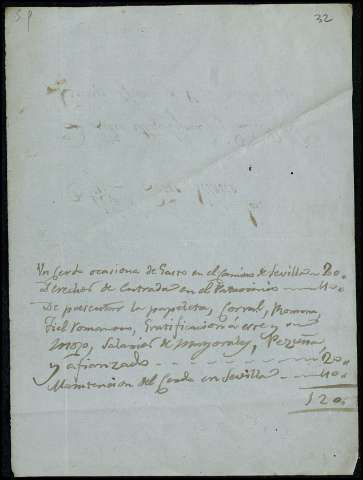 S. P.
32
Un Cerdo ocasiona de Gasto en el Camino de Sevilla 20.
Derechos de Entrada en el Patrimonio 40.
De presentar la papeleta, Corral, Romana,
fiel romanero, Gratificasion a ese y un
mozo, Salarios de mayorales,
y afianzado 20.
Manutension del Cerdo en Sevilla 40.
120.